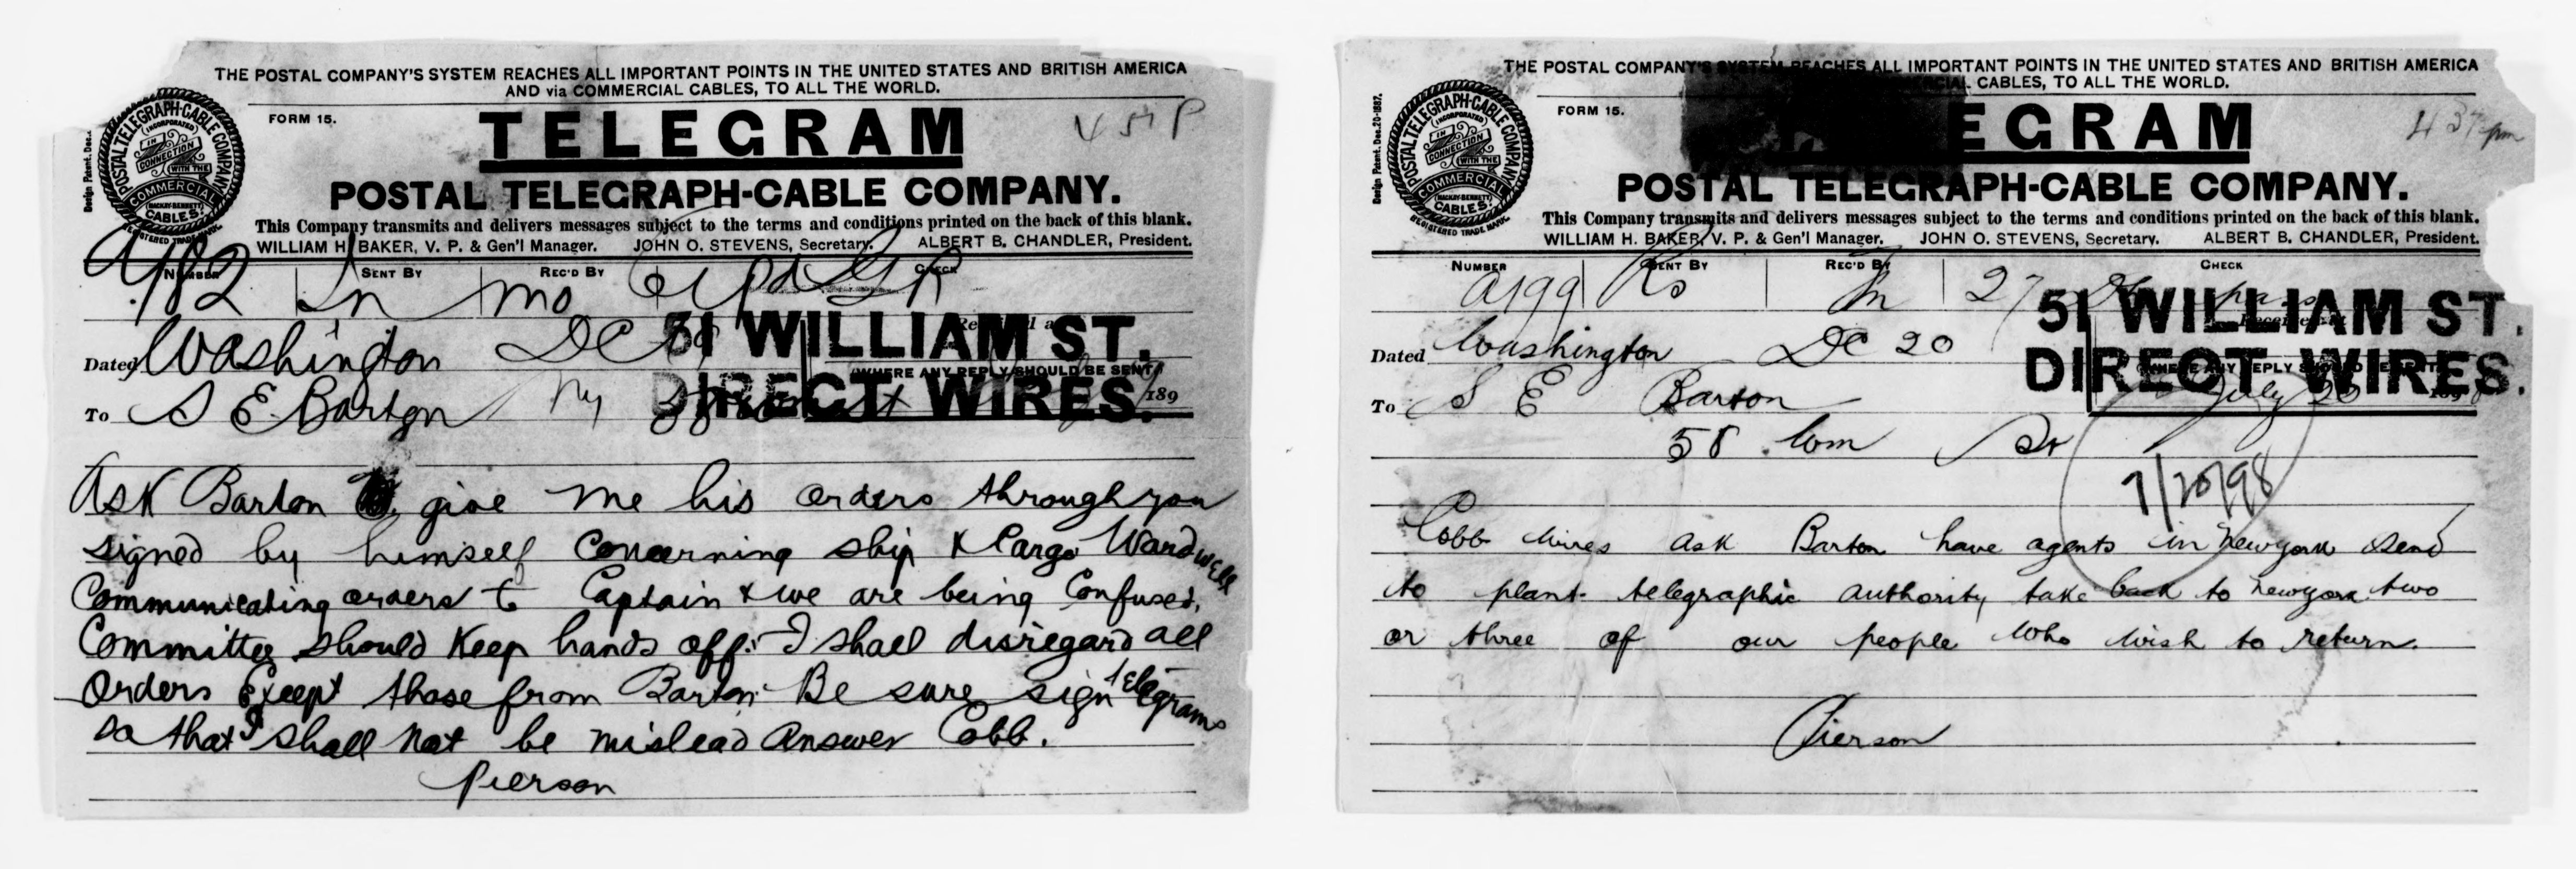 THE POSTAL COMPANY'S SYSTEM REACHES ALL IMPORTANT POINTS IN THE UNITED STATES AND BRITISH AMERICA
AND via COMMERCIAL CABLES, TO ALL THE WORLD.
FORM 15.
TELEGRAM
POSTAL TELEGRAPH-CABLE COMPANY.
This Company transmits and delivers messages subject to the terms and conditions printed on the back of this blank.
WILLIAM H. BAKER, V. P. & Gen'l Manager. JOHN O. STEVENS, Secretary. ALBERT B. CHANDLER, President.
POSTAL TELEGRAPH-CABLE COMPANY
(INCORPORATED)
IN CONNECTION WITH THE
COMMERCIAL
(MACKAY-BENNETT)
CABLES.
REGISTERED TRADE MARK.
Design Patent. Dec.
NUMBER SENT BY REC'D BY CHECK
Dated Washington DC
51 WILLIAM ST.
DIRECT WIRES.
(WHERE ANY REPLY SHOULD BE SENT)
189
To S E Barton
Ask Barton give me his orders through you
signed by himself concerning ship & Cargo Wardwell
Communicating orders to Captain & we are being Confused.
Committee should keep hands off. I shall disregard all
orders Except those from Barton. Be sure sign telegrams
so that I shall not be mislead Answer Cobb.
Pierson
THE POSTAL COMPANY'S SYSTEM REACHES ALL IMPORTANT POINTS IN THE UNITED STATES AND BRITISH AMERICA
CABLES, TO ALL THE WORLD.
FORM 15.
EGRAM
437 pm
POSTAL TELEGRAPH-CABLE COMPANY.
This Company transmits and delivers messages subject to the terms and conditions printed on the back of this blank.
WILLIAM H. BAKER, V. P. & Gen'l Manager. JOHN O. STEVENS, Secretary. ALBERT B. CHANDLER, President.
POSTAL TELEGRAPH-CABLE COMPANY
(INCORPORATED)
IN CONNECTION WITH THE
COMMERCIAL
(MACKAY-BENNETT)
CABLES.
REGISTERED TRADE MARK.
Design Patent. Dec. 20-1887.
NUMBER SENT BY REC'D BY CHECK
a199 27
Dated Washington DC 20
51 WILLIAM ST.
DIRECT WIRES.
July 20
To S E Barton
58 Wm St
7/20/98
Cobb wires ask Barton have agents in Newyork send
to plant telegraphic authority take back to newyork two
or three of our people who wish to return.
Pierson